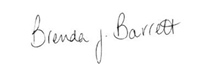 Brenda J. Barrett